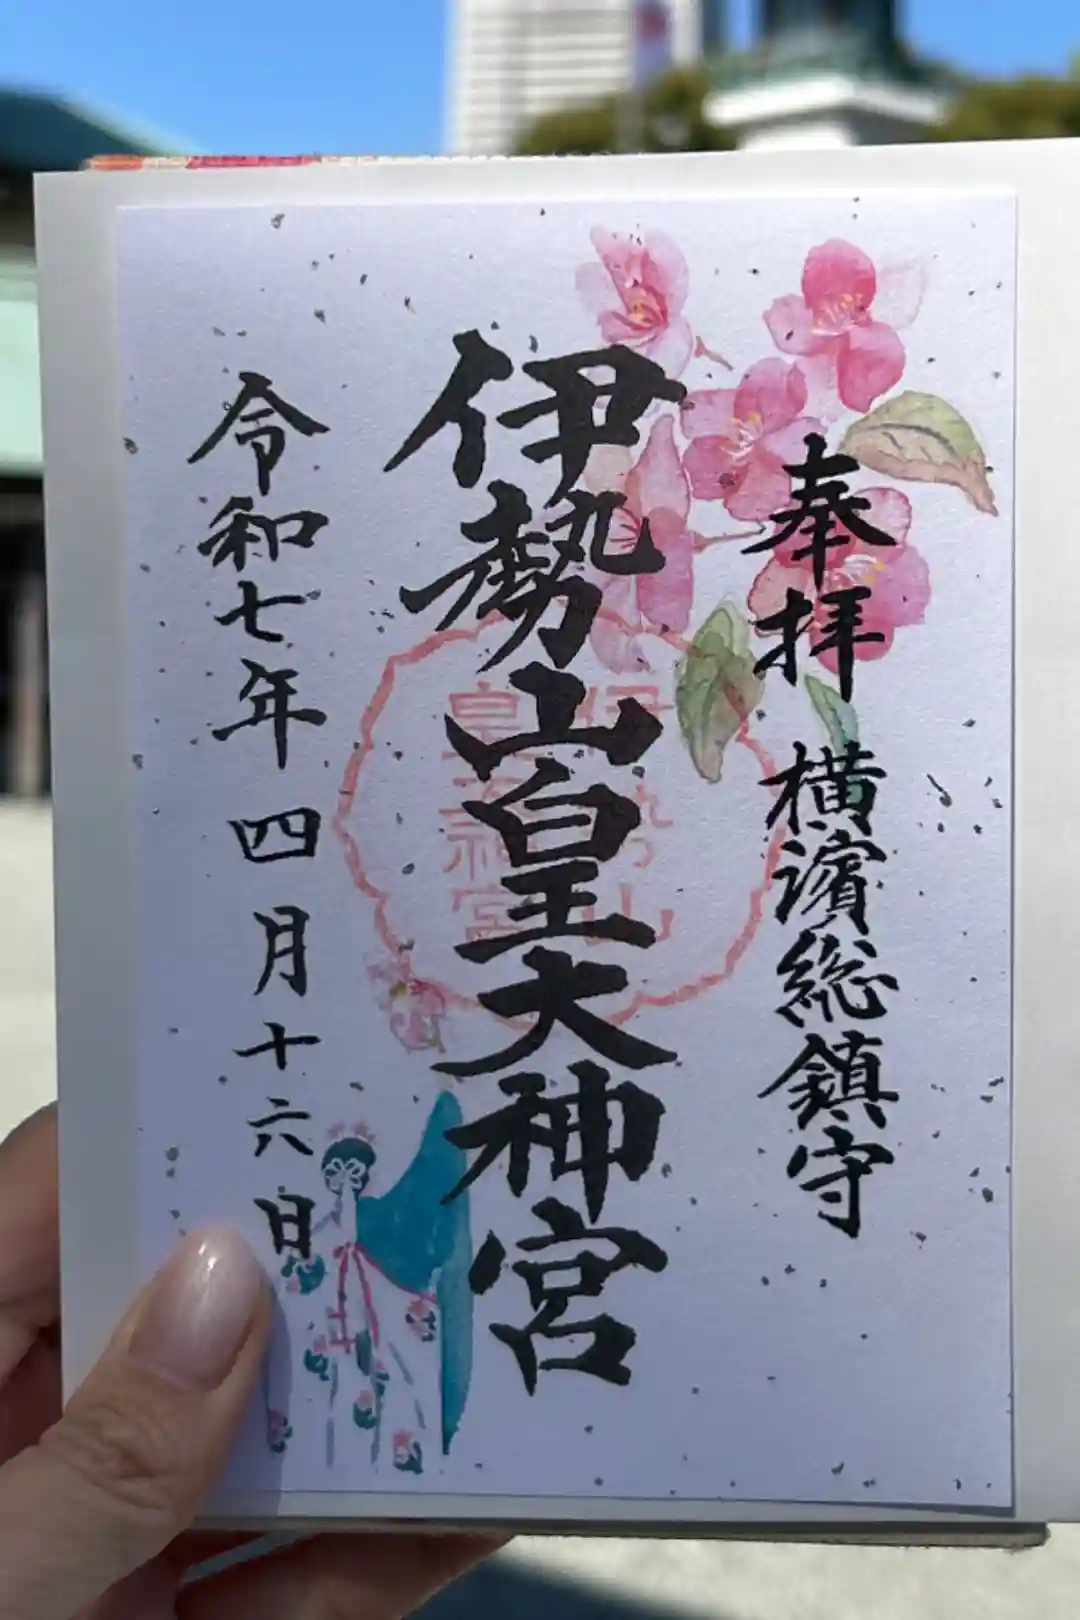 奉拝 横濱総鎮守
伊勢山皇大神宮
令和七年 四月十六日